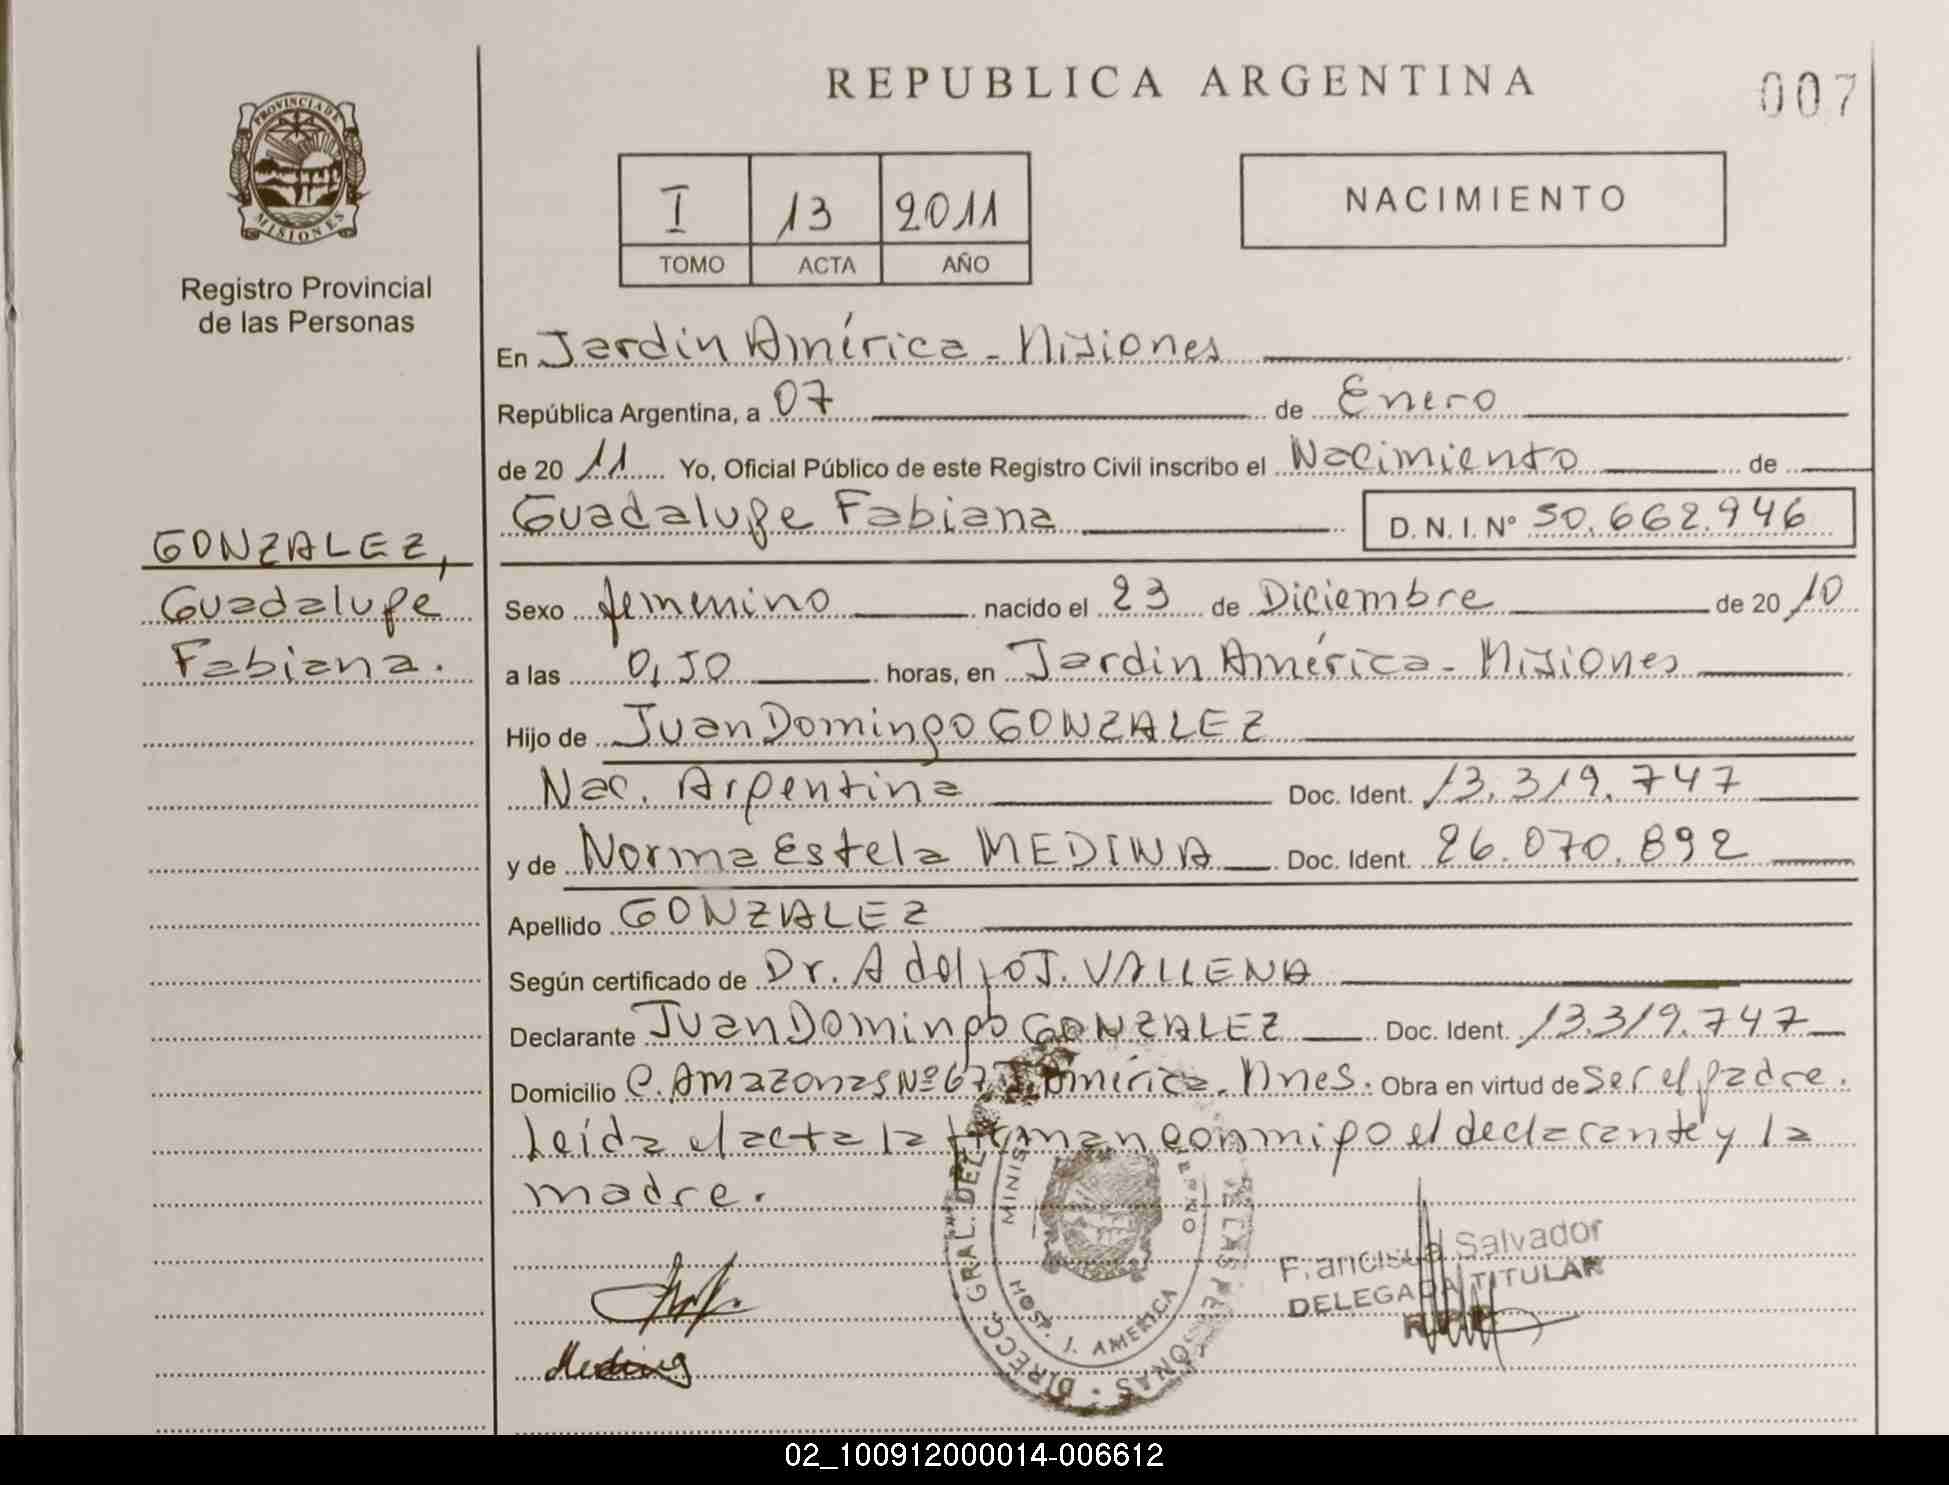 REPUBLICA ARGENTINA
007
PROVINCIA DE
MISIONES
Registro Provincial
de las Personas
I 13 2011
TOMO ACTA AÑO
NACIMIENTO
En Jardín América - Misiones
República Argentina, a 07 de Enero
de 20 11 Yo, Oficial Público de este Registro Civil inscribo el Nacimiento de
Guadalupe Fabiana D. N. I. Nº 50.662.946
GONZALEZ,
Guadalupe
Fabiana.
Sexo femenino nacido el 23 de Diciembre de 20 10
a las 0,50 horas, en Jardín América - Misiones
Hijo de Juan Domingo GONZALEZ
Nac. Argentina Doc. Ident. 13.319.747
y de Norma Estela MEDINA Doc. Ident. 26.070.892
Apellido GONZALEZ
Según certificado de Dr. Adolfo J. VALLENA
Declarante Juan Domingo GONZALEZ Doc. Ident. 13.319.747
Domicilio C. Amazonas Nº 67 J. América - Mnes. Obra en virtud de ser el padre.
Leída el acta la firman conmigo el declarante y la
madre.
DIRECC. GRAL. DEL DE LAS PERSONAS
HOSP. J. AMERICA
Salvador
DELEGADA TITULAR
Medina
02_100912000014-006612